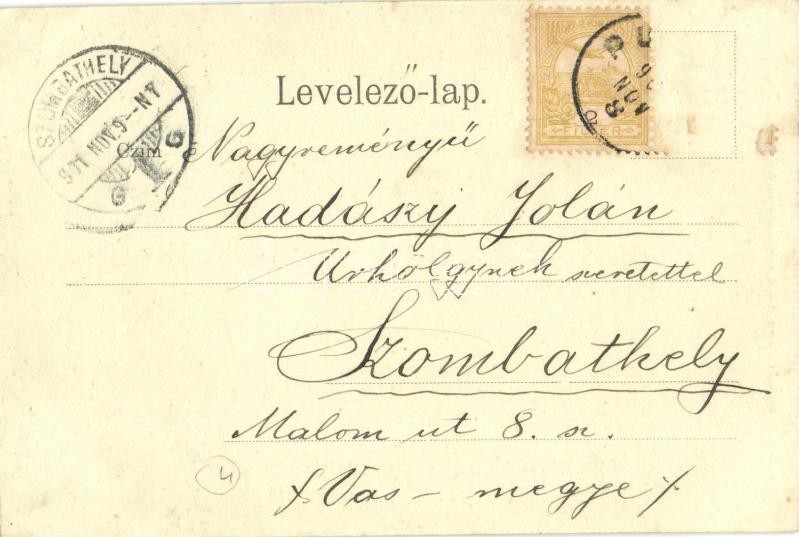 SZOMBATHELY
NOV. 9
Levelező-lap.
MAGYAR KIR.
FILLÉR
NOV 8
Czim
Nagyreményű
Hadászy Jolán
Urhölgynek szeretettel
Szombathely
Malom ut 8. sz.
(Vas-megye)
4